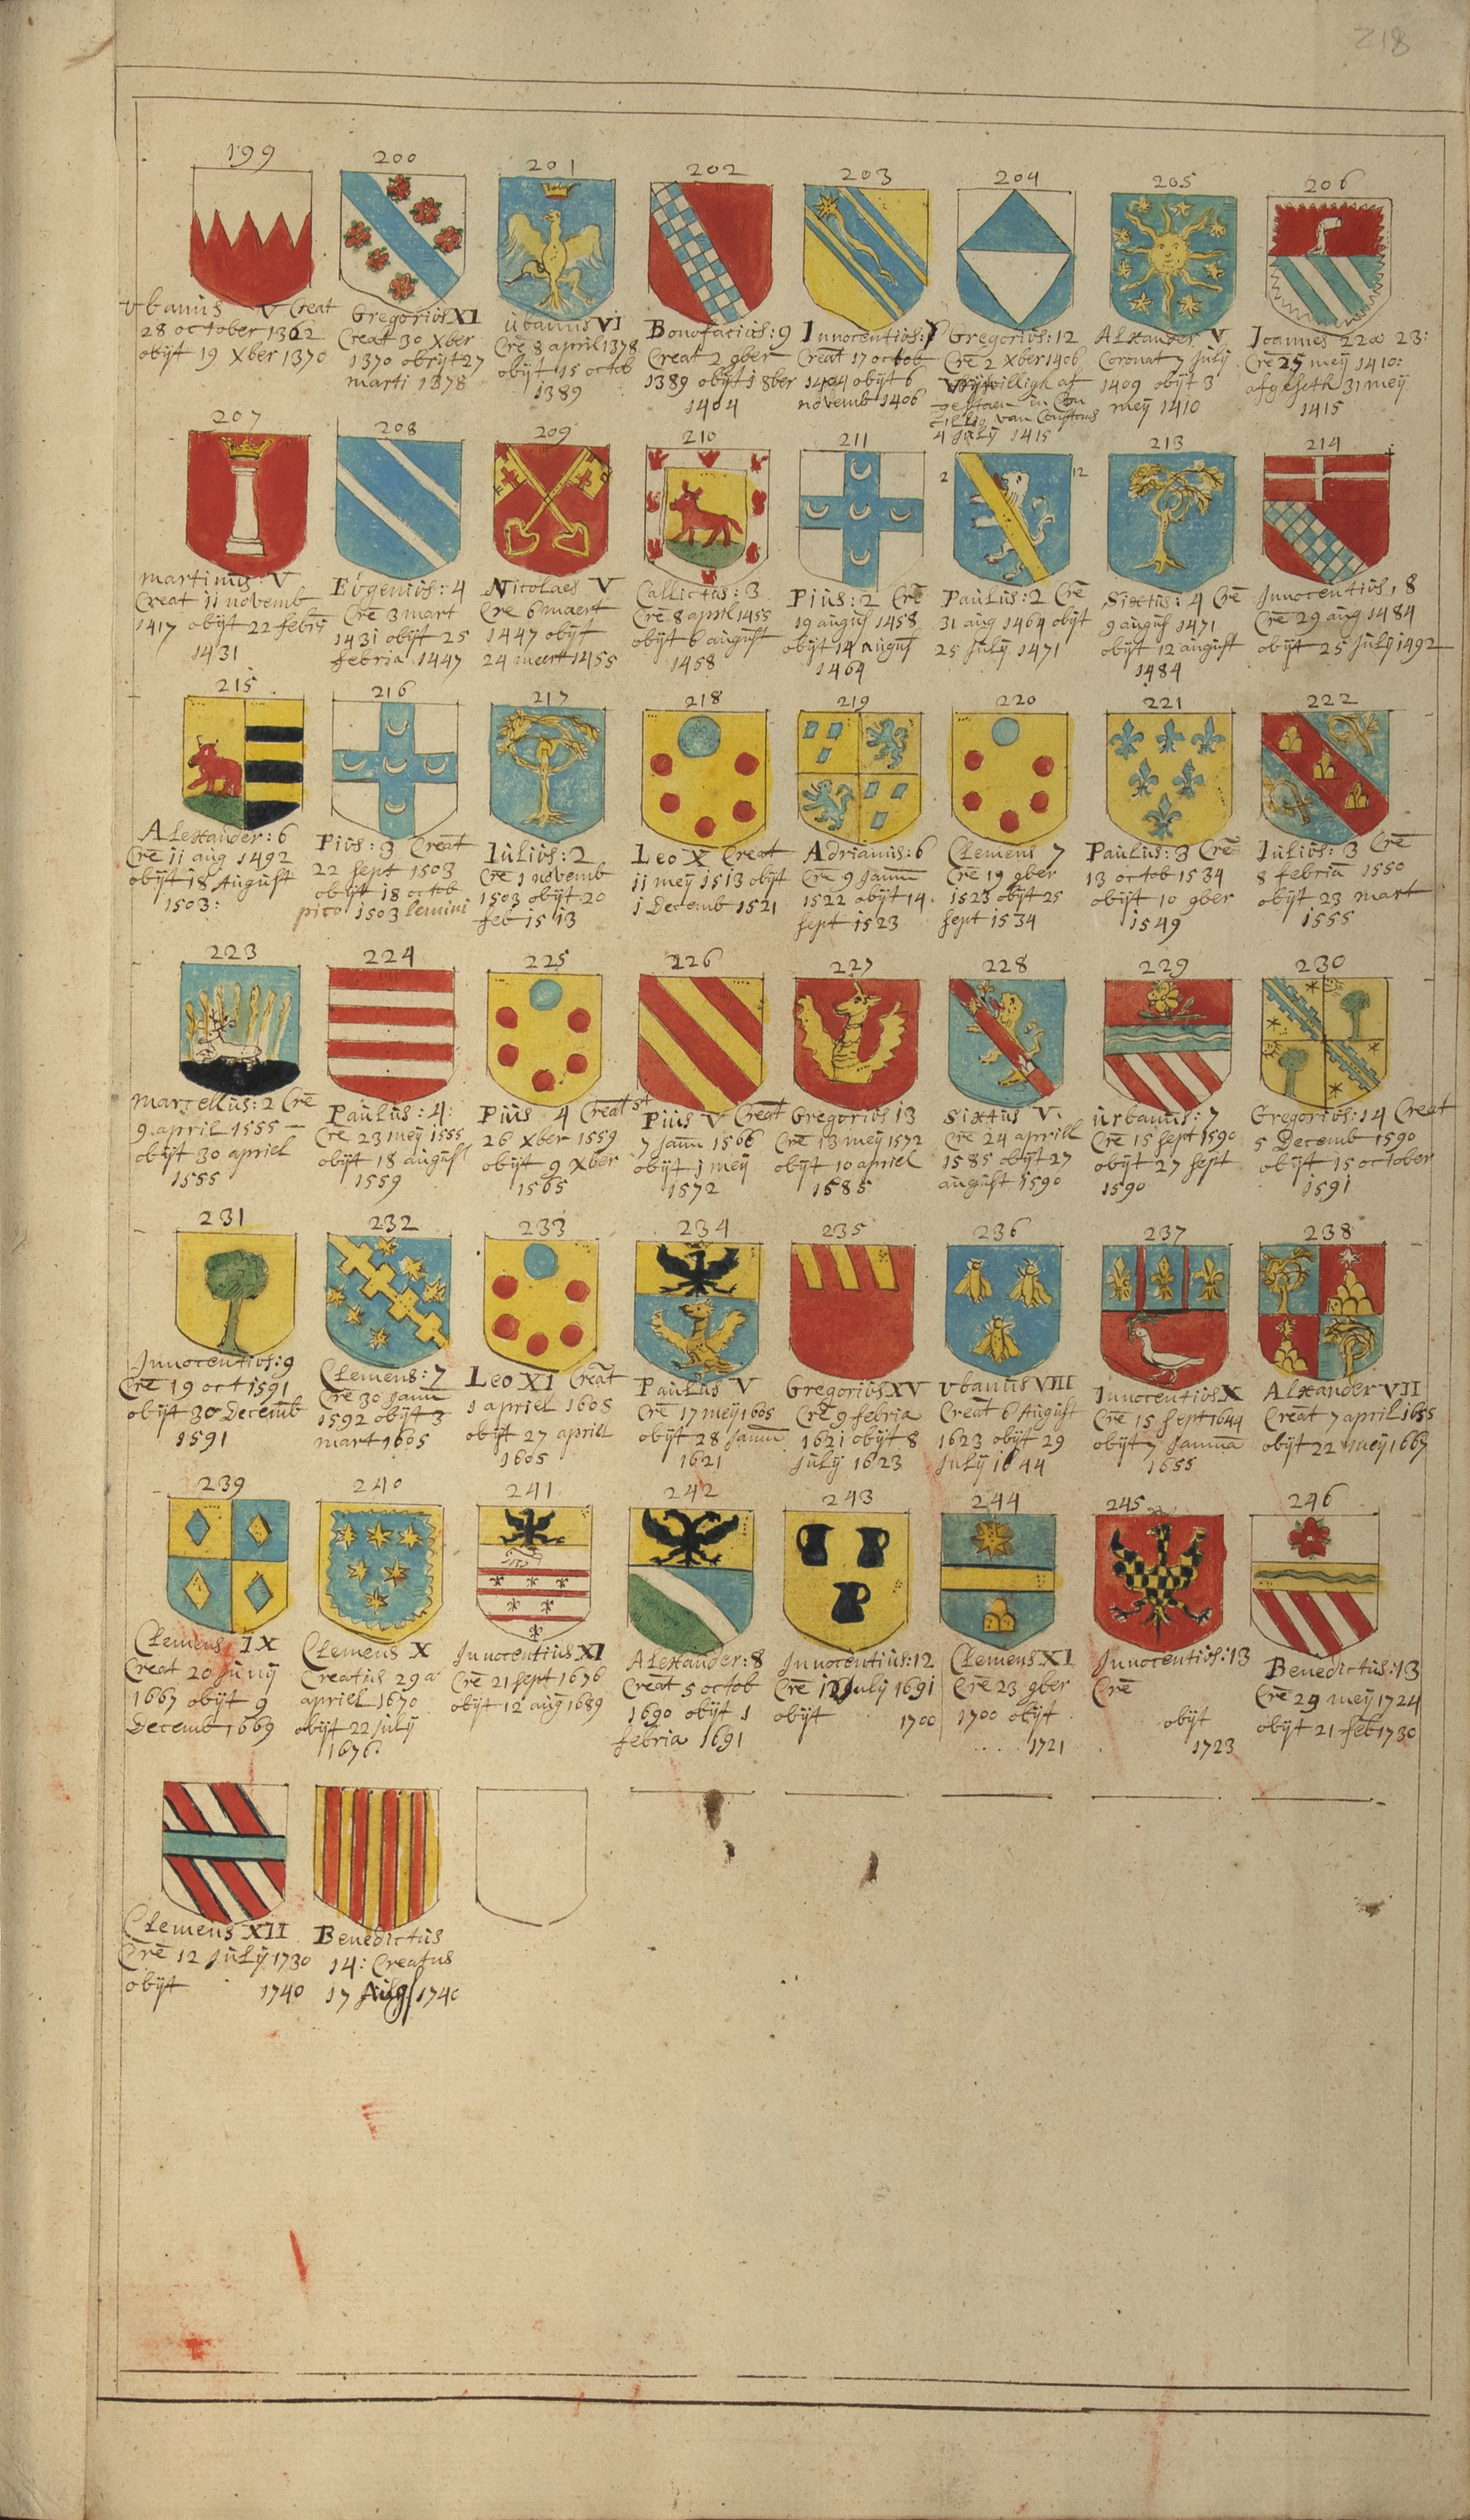 218
199
Vbanus V Creat
28 october 1362
obijt 19 Xber 1370
200
Gregorius XI
Creat 30 Xber
1370 obijt 27
marti 1378
201
übanus VI
Crē 8 april 1378
obijt 15 octob
1389
202
Bonofacius: 9
Creat 2 9ber
1389 obijt 1 8ber
1404
203
Innocentius: 7
Creat 17 octob
1404 obijt 6
novemb 1406
204
Gregorius: 12
Crē 2 Xber 1406
Vrijwilligh af
gestaen in Con
van Constans
4 Julij 1415
205
ALexander V
Coronat 7 julij
1409 obijt 3
meij 1410
206
Ioannes 22 a 23:
Crē 25 meij 1410:
afgeseth 31 meij
1415
207
martinus: V
Creat 11 novemb
1417 obijt 22 febrij
1431
208
Eugenius: 4
Crē 3 mart
1431 obijt 25
febria 1447
209
Nicolaes V
Cre 6 maert
1447 obijt
24 meert 1455
210
Callictus: 3
Crē 8 april 1455
obijt 6 august
1458
211
Pius: 2 Crē
19 august 1458
obijt 14 august
1464
2 12
Paulus: 2 Crē
31 aug 1464 obijt
25 Julij 1471
213
Sixtus: 4 Crē
9 august 1471
obijt 12 august
1484
214
Innocentius, 8
Crē 29 aug 1484
obijt 25 Julij 1492
215
ALexander: 6
Crē 11 aug 1492
obijt 18 August
1503:
216
Pius: 3 Creat
22 sept 1503
obijt 18 octob
pico 1503 lemini
217
Iulius: 2
Crē 1 novemb
1503 obijt 20
feb 1513
218
Leo X Creat
11 meij 1513 obijt
1 Decemb 1521
219
Adrianus: 6
Crē 9 Janu
1522 obijt 14
sept 1523
220
Clemens 7
Crē 19 9ber
1523 obijt 25
sept 1534
221
Paulus: 3 Crē
13 octob 1534
obijt 10 9ber
1549
222
Iulius: 3 Crē
8 febria 1550
obijt 23 mart
1555
223
marsellus: 2 Crē
9 april 1555
obijt 30 apriel
1555
224
Paulus: 4:
Crē 23 meij 1555
obijt 18 august
1559
225
Pius 4 Creat
26 Xber 1559
obijt 9 Xber
1565
226
Pius V Creat
7 Janu 1566
obijt 1 meij
1572
227
Gregorius 13
Crē 13 meij 1572
obijt 10 apriel
1585
228
Sixtus V:
Crē 24 aprill
1585 obijt 27
august 1590
229
ürbanus: 7
Crē 15 sept 1590
obijt 27 sept
1590
230
Gregorius: 14 Creat
5 Decemb 1590
obijt 15 october
1591
231
Innocentius: 9
Crē 19 oct 1591
obijt 30 Decemb
1591
232
Clemens: 7
Crē 30 Janu
1592 obijt 3
mart 1605
233
Leo XI Creat
1 apriel 1605
obijt 27 aprill
1605
234
Paulus V
Crē 17 meij 1605
obijt 28 Janu
1621
235
Gregorius XV
Crē 9 febria
1621 obijt 8
Julij 1623
236
Vbanus VIII
Creat 6 August
1623 obijt 29
Julij 1644
237
Innocentius X
Crē 15 sept 1644
obijt 7 Janua
1655
238
ALxander VII
Creat 7 april 1655
obijt 22 meij 1667
239
Clemens IX
Creat 20 Junij
1667 obijt 9
Decemb 1669
240
Clemens X
Creatus 29 a
apriel 1670
obijt 22 julij
1676:
241
Innocentius XI
Crē 21 sept 1676
obijt 12 aug 1689
242
ALexander: 8
Creat 5 octob
1690 obijt 1
febria 1691
243
Innocentius: 12
Crē 12 July 1691
obijt 1700
244
Clemens XI
Crē 23 9ber
1700 obijt
1721
245
Innocentius: 13
Crē
obijt
1723
246
Benedictus: 13
Crē 29 meij 1724
obijt 21 feb 1730
Clemens XII
Crē 12 Julij 1730
obijt 1740
Benedictus
14: Creatus
17 Aug 1740